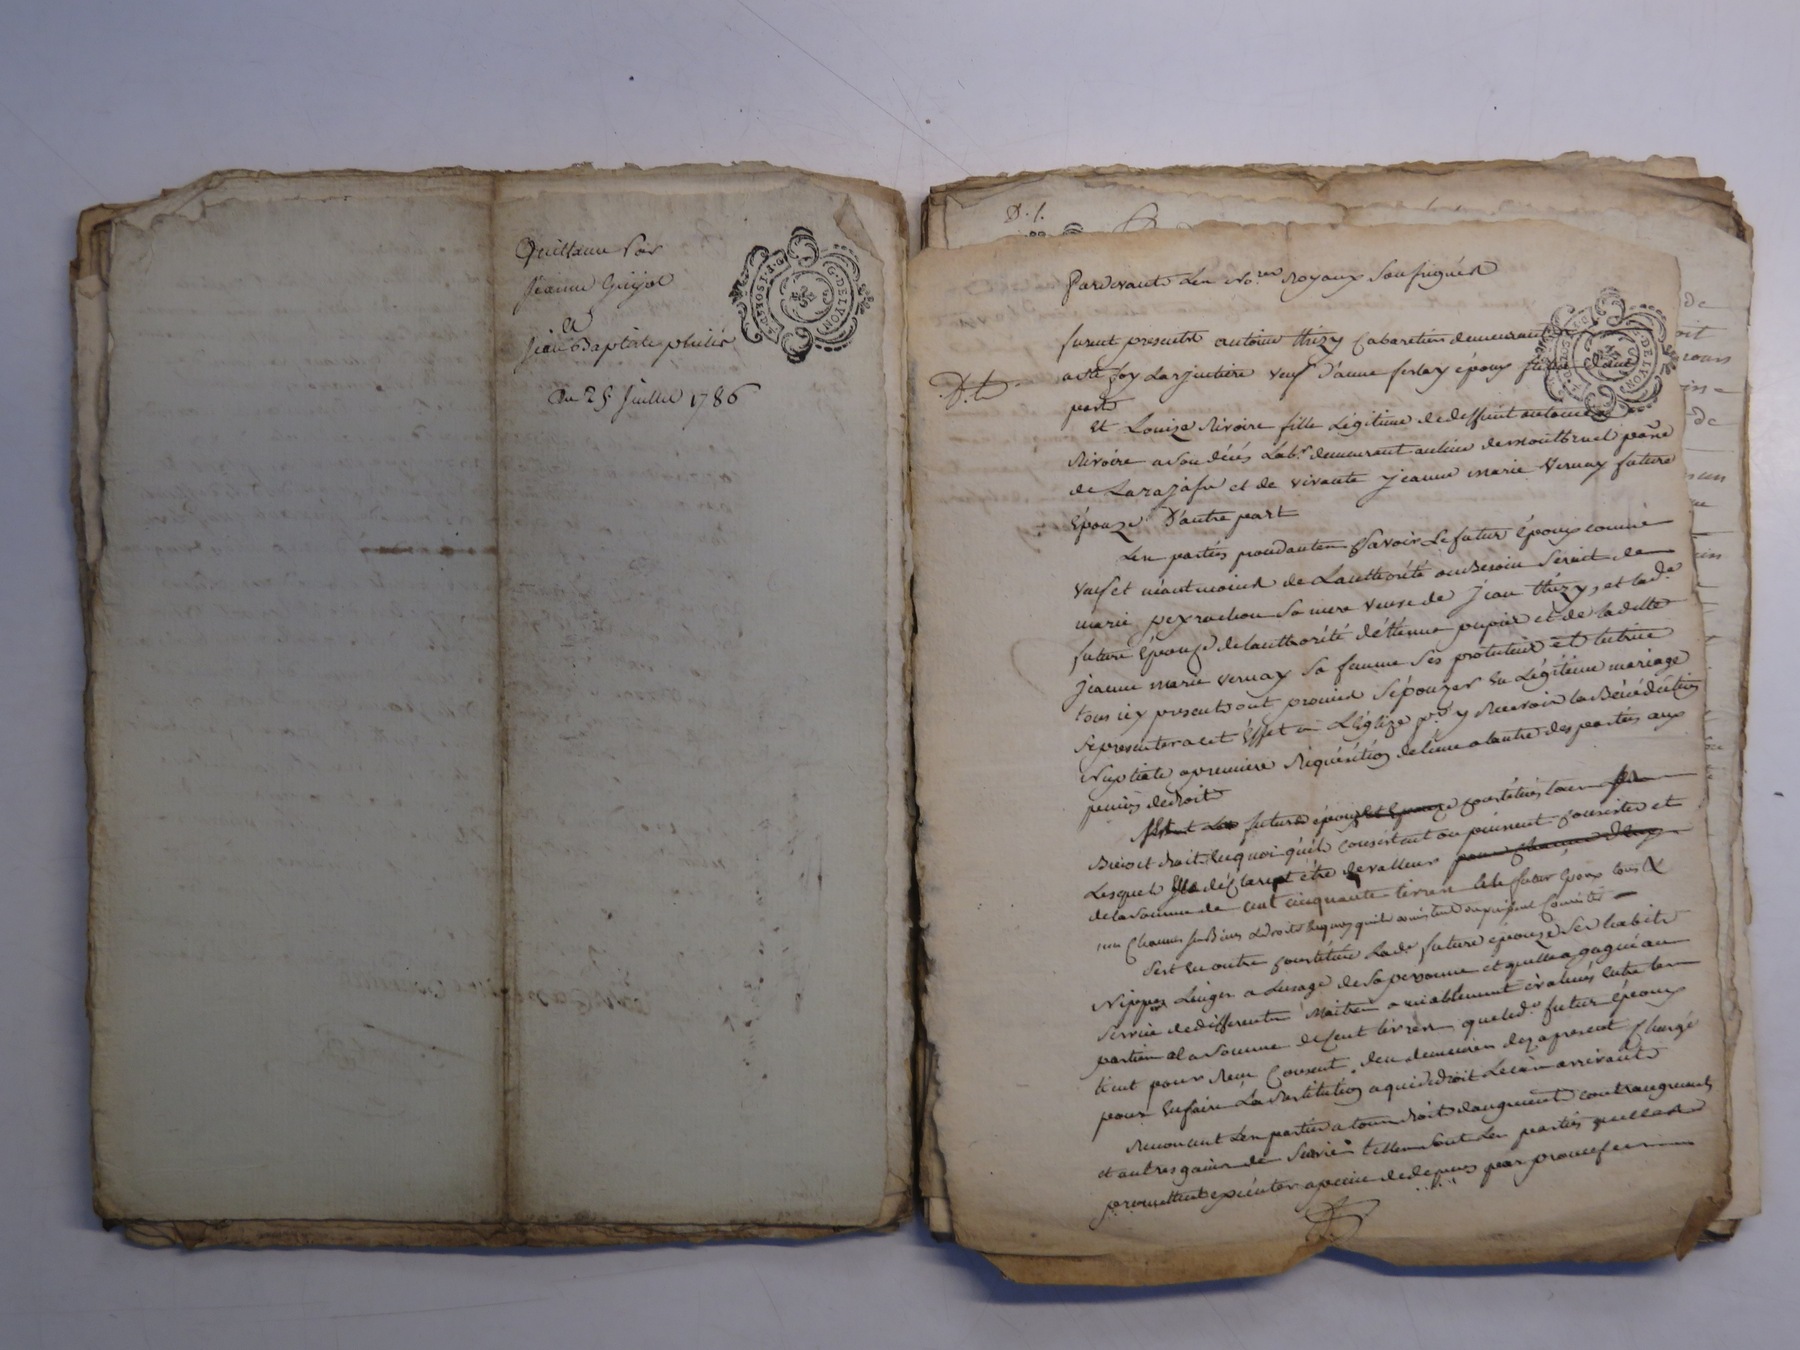 Quittance Par
Jeanne Guijot
a
Jean Baptiste philis
Du 25 Juillet 1786
G. DE LYON
D. l.
Pardevant Les No.res Royaux Soussignés
furent presents antoine thizy Cabaretier demeurant
a Ste foy Larjentiere veuf d'anne ferlay époux futur d'une
part
Et Louize Rivoire fille Légitime de deffunt antoine
Rivoire a son décés Lab.r demeurant au lieu de montbruel pa.sse
de Larajasse et de vivante jeanne marie Vernay future
Epouze D'autre part
Les parties procedantes Savoir Le futur époux comme
veuf et néantmoins de Lauthorité au Besoin Seroit de
marie peyrachon Sa mere veuve de jean thizy, et lad.e
future Epouze de lauthorité d'étienne pupier et de laditte
jeanne marie vernay Sa femme Ses protuteur et tutrice
tous icy presents ont promis Sépouzer en Légitime mariage
Se presenter a cet Effet en L'église p.r y Recevoir la Bénédiction
Nuptiale a premiere Réquisition de lune a lautre des parties aux
peines de droit
future épouze constitués tous
Biens et droits en quoi qu'ils consistent ou puissent consister et
Lesquels Elle déclare être de valleur pour chacun deux
de la somme de cent cinquante livres et le futur époux tous
Biens et Droits en quoy quils consistent ou puissent Consister
Sest en outre constituée Lad.e future épouze Ses habits
Nippes Linges a Lusage de Sa personne et quelle a gagné au
Service de differents Maitres amiablement évalués entre les
parties a la Somme de Cent livres que led. futur époux
tient pour Reçu Consent den demeurer dez a present Chargé
pour En faire La Restitution a qui de droit Le cas arrivant
Renoncent Les parties a tous droits daugment contraugment
et autres gains de Survie telles sont Les parties quelles
promettent exécuter a peine de depens par promesses